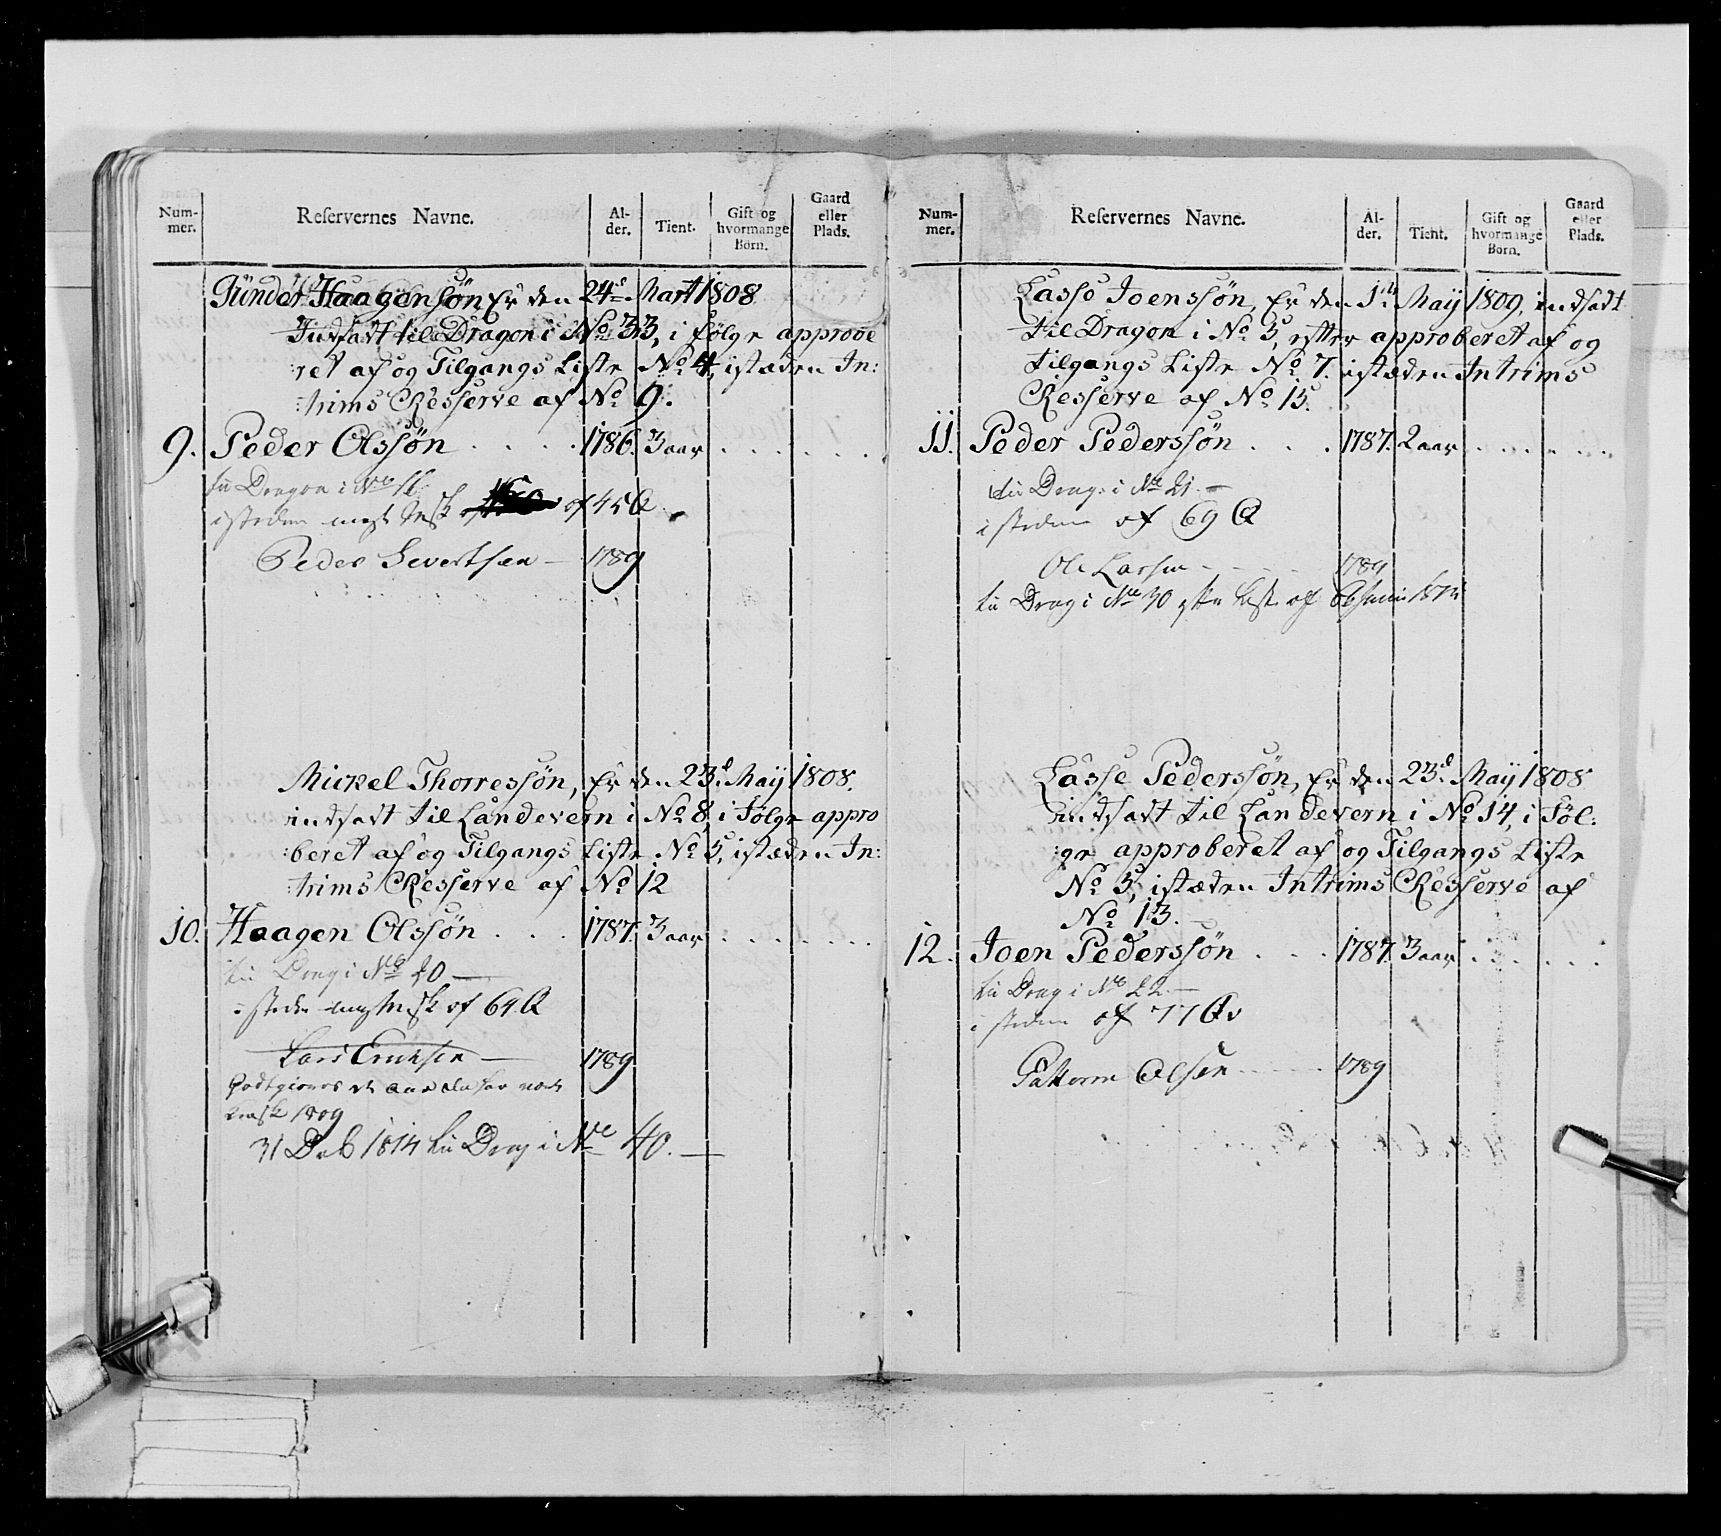 Num-
mer.
Reservernes Navne.
Al-
der.
Tient.
Gift og
hvormange
Börn.
Gaard
eller
Plads.
Günder Haagensøn Er den 24d Mart 1808
Indsadt til Dragon i No 33, i følge approve
ret af og Tilgangs Liste No 4, istæden In:
:trims Resserve af No 9.
9. Peder Olssøn . . . . 1786. 3 aar . . . . . .
til Dragon i No
isteden af 45 Q
Peder Severtsen — 1789
Mickel Thorressøn, Er den 23d May 1808.
indsadt til Landevern i No 8, i Følge appro
:beret af og Tilgangs Liste No 5, istæden In:
:trims Resserve af No 12
10. Haagen Olssøn . . . 1787. 3 aar . . . . . .
til Drag i No 20 —
isteden af 64 Q
Lars Ericksen — 1789
1809
31 Deb 1814 til Drag i No 40. —
Num-
mer.
Reservernes Navne.
Al-
der.
Tient.
Gift og
hvormange
Börn.
Gaard
eller
Plads.
Lasse Joenssøn, Er den 1te May 1809, indsadt
til Dragon i No 5, efter approberet af og
tilgangs Liste No 7. istæden Intrims
Resserve af No 15.
11. Peder Pederssøn . . . 1787. 2 aar . . . . . .
til Drag: i No 21. —
isteden af 69 Q
Ole Larsen - - - - 1789
til Drag i No 30
Lasse Pederssøn, Er den 23d May 1808
indsadt til Landevern i No 14, i Føl:
:ge approberet af og Tilgangs Liste
No 5, istæden Intrims Resserve af
No 13.
12. Joen Pederssøn . . . 1787. 3 aar . . . . . .
til Drag i No 22. —
isteden af 77
Olsen - - - - 1789